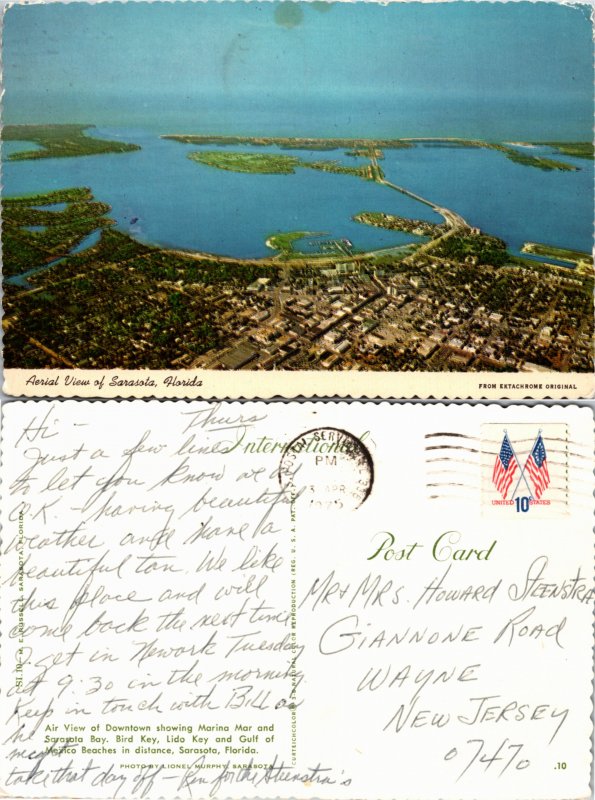 Aerial View of Sarasota, Florida
FROM EKTACHROME ORIGINAL
Hi - Thurs
Just a few lines
to let you know we are
O.K. - having beautiful
weather and have a
beautiful tan. We like
this place and will
come back the next time
I get in Newark Tuesday
at 9:30 in the morning
Keep in touch with Bill as
he
might
take that day off - for the Steenstra's
Air View of Downtown showing Marina Mar and
Sarasota Bay. Bird Key, Lido Key and Gulf of
Mexico Beaches in distance, Sarasota, Florida.
PHOTO BY LIONEL MURPHY, SARASOTA
RUSSELL, SARASOTA, FLORIDA
International
POSTAL SERVICE
PM
3 APR
1975
UNITED 10¢ STATES
Post Card
Mr + Mrs. Howard Steenstra
Giannone Road
Wayne
New Jersey
07470
.10